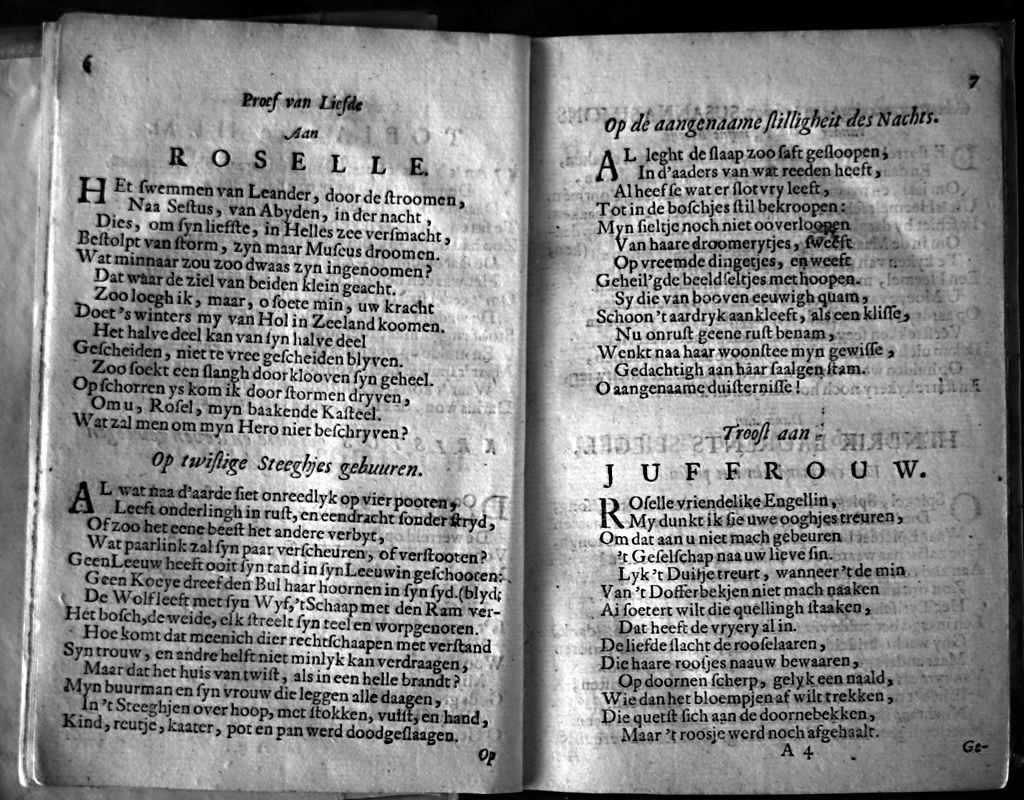 6
Proef van Liefde
Aan
ROSELLE.
HEt swemmen van Leander, door de stroomen,
Naa Sestus, van Abyden, in der nacht,
Dies, om syn liefste, in Helles zee versmacht,
Bestolpt van storm, zyn maar Museus droomen.
Wat minnaar zou zoo dwaas zyn ingenoomen?
Dat waar de ziel van beiden klein geacht.
Zoo loegh ik, maar, o soete min, uw kracht
Doet 's winters my van Hol in Zeeland koomen.
Het halve deel kan van syn halve deel
Gescheiden, niet te vree gescheiden blyven.
Zoo soekt een slangh doorklooven syn geheel.
Op schorren ys kom ik door stormen dryven,
Om u, Rosel, myn baakende Kasteel.
Wat zal men om myn Hero niet beschryven?
Op twistige Steeghjes gebuuren.
AL wat naa d'aarde siet onreedlyk op vier pooten,
Leeft onderlingh in rust, en eendracht sonder stryd,
Of zoo het eene beest het andere verbyt,
Wat paarlink zal syn paar verscheuren, of verstooten?
Geen Leeuw heeft ooit syn tand in syn Leeuwin geschooten:
Geen Koeye dreef den Bul haar hoornen in syn syd. (blyd;
De Wolf leeft met syn Wyf, 't Schaap met den Ram ver-
Het bosch, de weide, elk streelt syn teel en worpgenoten.
Hoe komt dat meenich dier rechtschaapen met verstand
Syn trouw, en andre helft niet minlyk kan verdraagen,
Maar dat het huis van twist, als in een helle brandt?
Myn buurman en syn vrouw die leggen alle daagen,
In 't Steeghjen over hoop, met stokken, vuist, en hand,
Kind, reutje, kaater, pot en pan werd doodgeslaagen.
Op
7
Op de aangenaame stilligheit des Nachts.
AL leght de slaap zoo saft geslopen,
In d'aaders van wat reeden heeft,
Al heefse wat er slotvry leeft,
Tot in de boschjes stil bekroopen:
Myn sieltje noch niet ooverloopen
Van haare droomerytjes, sweeft
Op vreemde dingetjes, en weeft
Geheil'gde beeldseltjes met hoopen.
Sy die van booven eeuwigh quam,
Schoon 't aardryk aankleeft, als een klisse,
Nu onrust geene rust benam,
Wenkt naa haar woonstee myn gewisse,
Gedachtigh aan haar saalgen stam.
O aangenaame duisternisse!
Troost aan
JUFFROUW.
ROselle vriendelike Engellin,
My dunkt ik sie uwe ooghjes treuren,
Om dat aan u niet mach gebeuren
't Geselschap naa uw lieve sin.
Lyk 't Duifje treurt, wanneer 't de min
Van 't Dofferbekjen niet mach naaken
Ai soetert wilt die quellingh staaken,
Dat heeft de vryery al in.
De liefde slacht de rooselaaren,
Die haare roosjes naauw bewaaren,
Op doornen scherp, gelyk een naald,
Wie dan het bloempjen af wilt trekken,
Die quetst sich aan de doornebekken,
Maar 't roosje werd noch afgehaalt.
A 4
Ge-